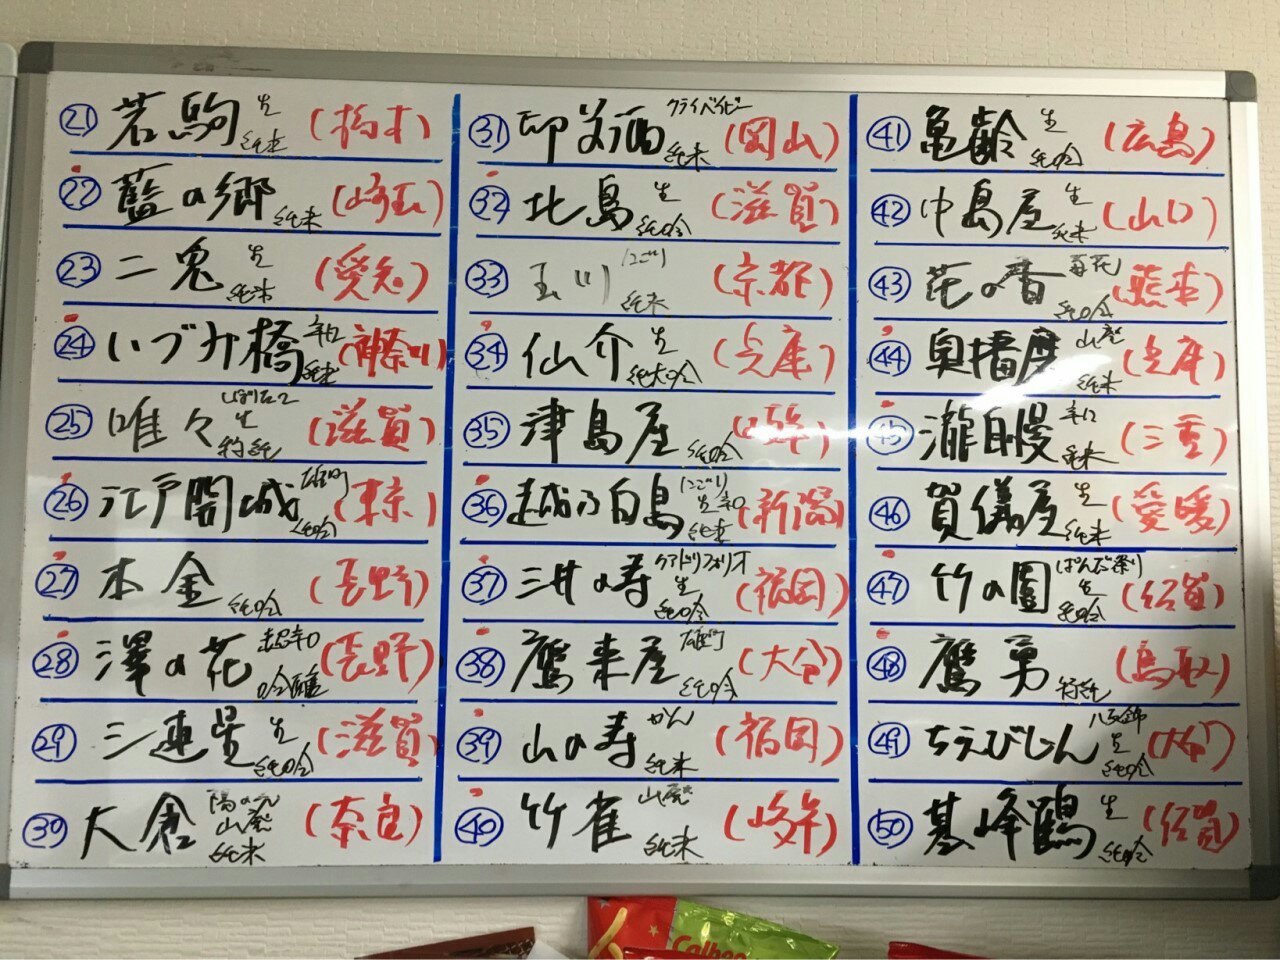 21 若駒 生 純米 (栃木)
22 藍の郷 純米 (埼玉)
23 二兎 生 純米 (愛知)
24 いづみ橋 辛口 純米 (神奈川)
25 唯々 しぼりたて 生 特純 (滋賀)
26 江戸開城 雄町 純吟 (東京)
27 本金 純吟 (長野)
28 澤の花 超辛口 吟醸 (長野)
29 三連星 生 純吟 (滋賀)
30 大倉 陽の光 山廃 純米 (奈良)
31 御前酒 クライベイビー 純米 (岡山)
32 北島 生 純吟 (滋賀)
33 玉川 にごり 純米 (京都)
34 仙介 生 純大吟 (兵庫)
35 津島屋 純吟 (岐阜)
36 越乃白鳥 にごり 生 辛口 純米 (新潟)
37 三井の寿 クアドリフォリオ 生 純吟 (福岡)
38 鷹来屋 雄町 純吟 (大分)
39 山の寿 かん 純米 (福岡)
40 竹雀 山廃 純米 (岐阜)
41 亀齢 生 純吟 (広島)
42 中島屋 生 純米 (山口)
43 花の香 菊花 純吟 (熊本)
44 奥播磨 山廃 純米 (兵庫)
45 瀧自慢 辛口 純米 (三重)
46 賀儀屋 生 純米 (愛媛)
47 竹の園 ぱんだ祭り 生 純吟 (佐賀)
48 鷹勇 特純 (鳥取)
49 ちえびじん 八反錦 生 純吟 (大分)
50 基峰鶴 生 純吟 (佐賀)
Calbee